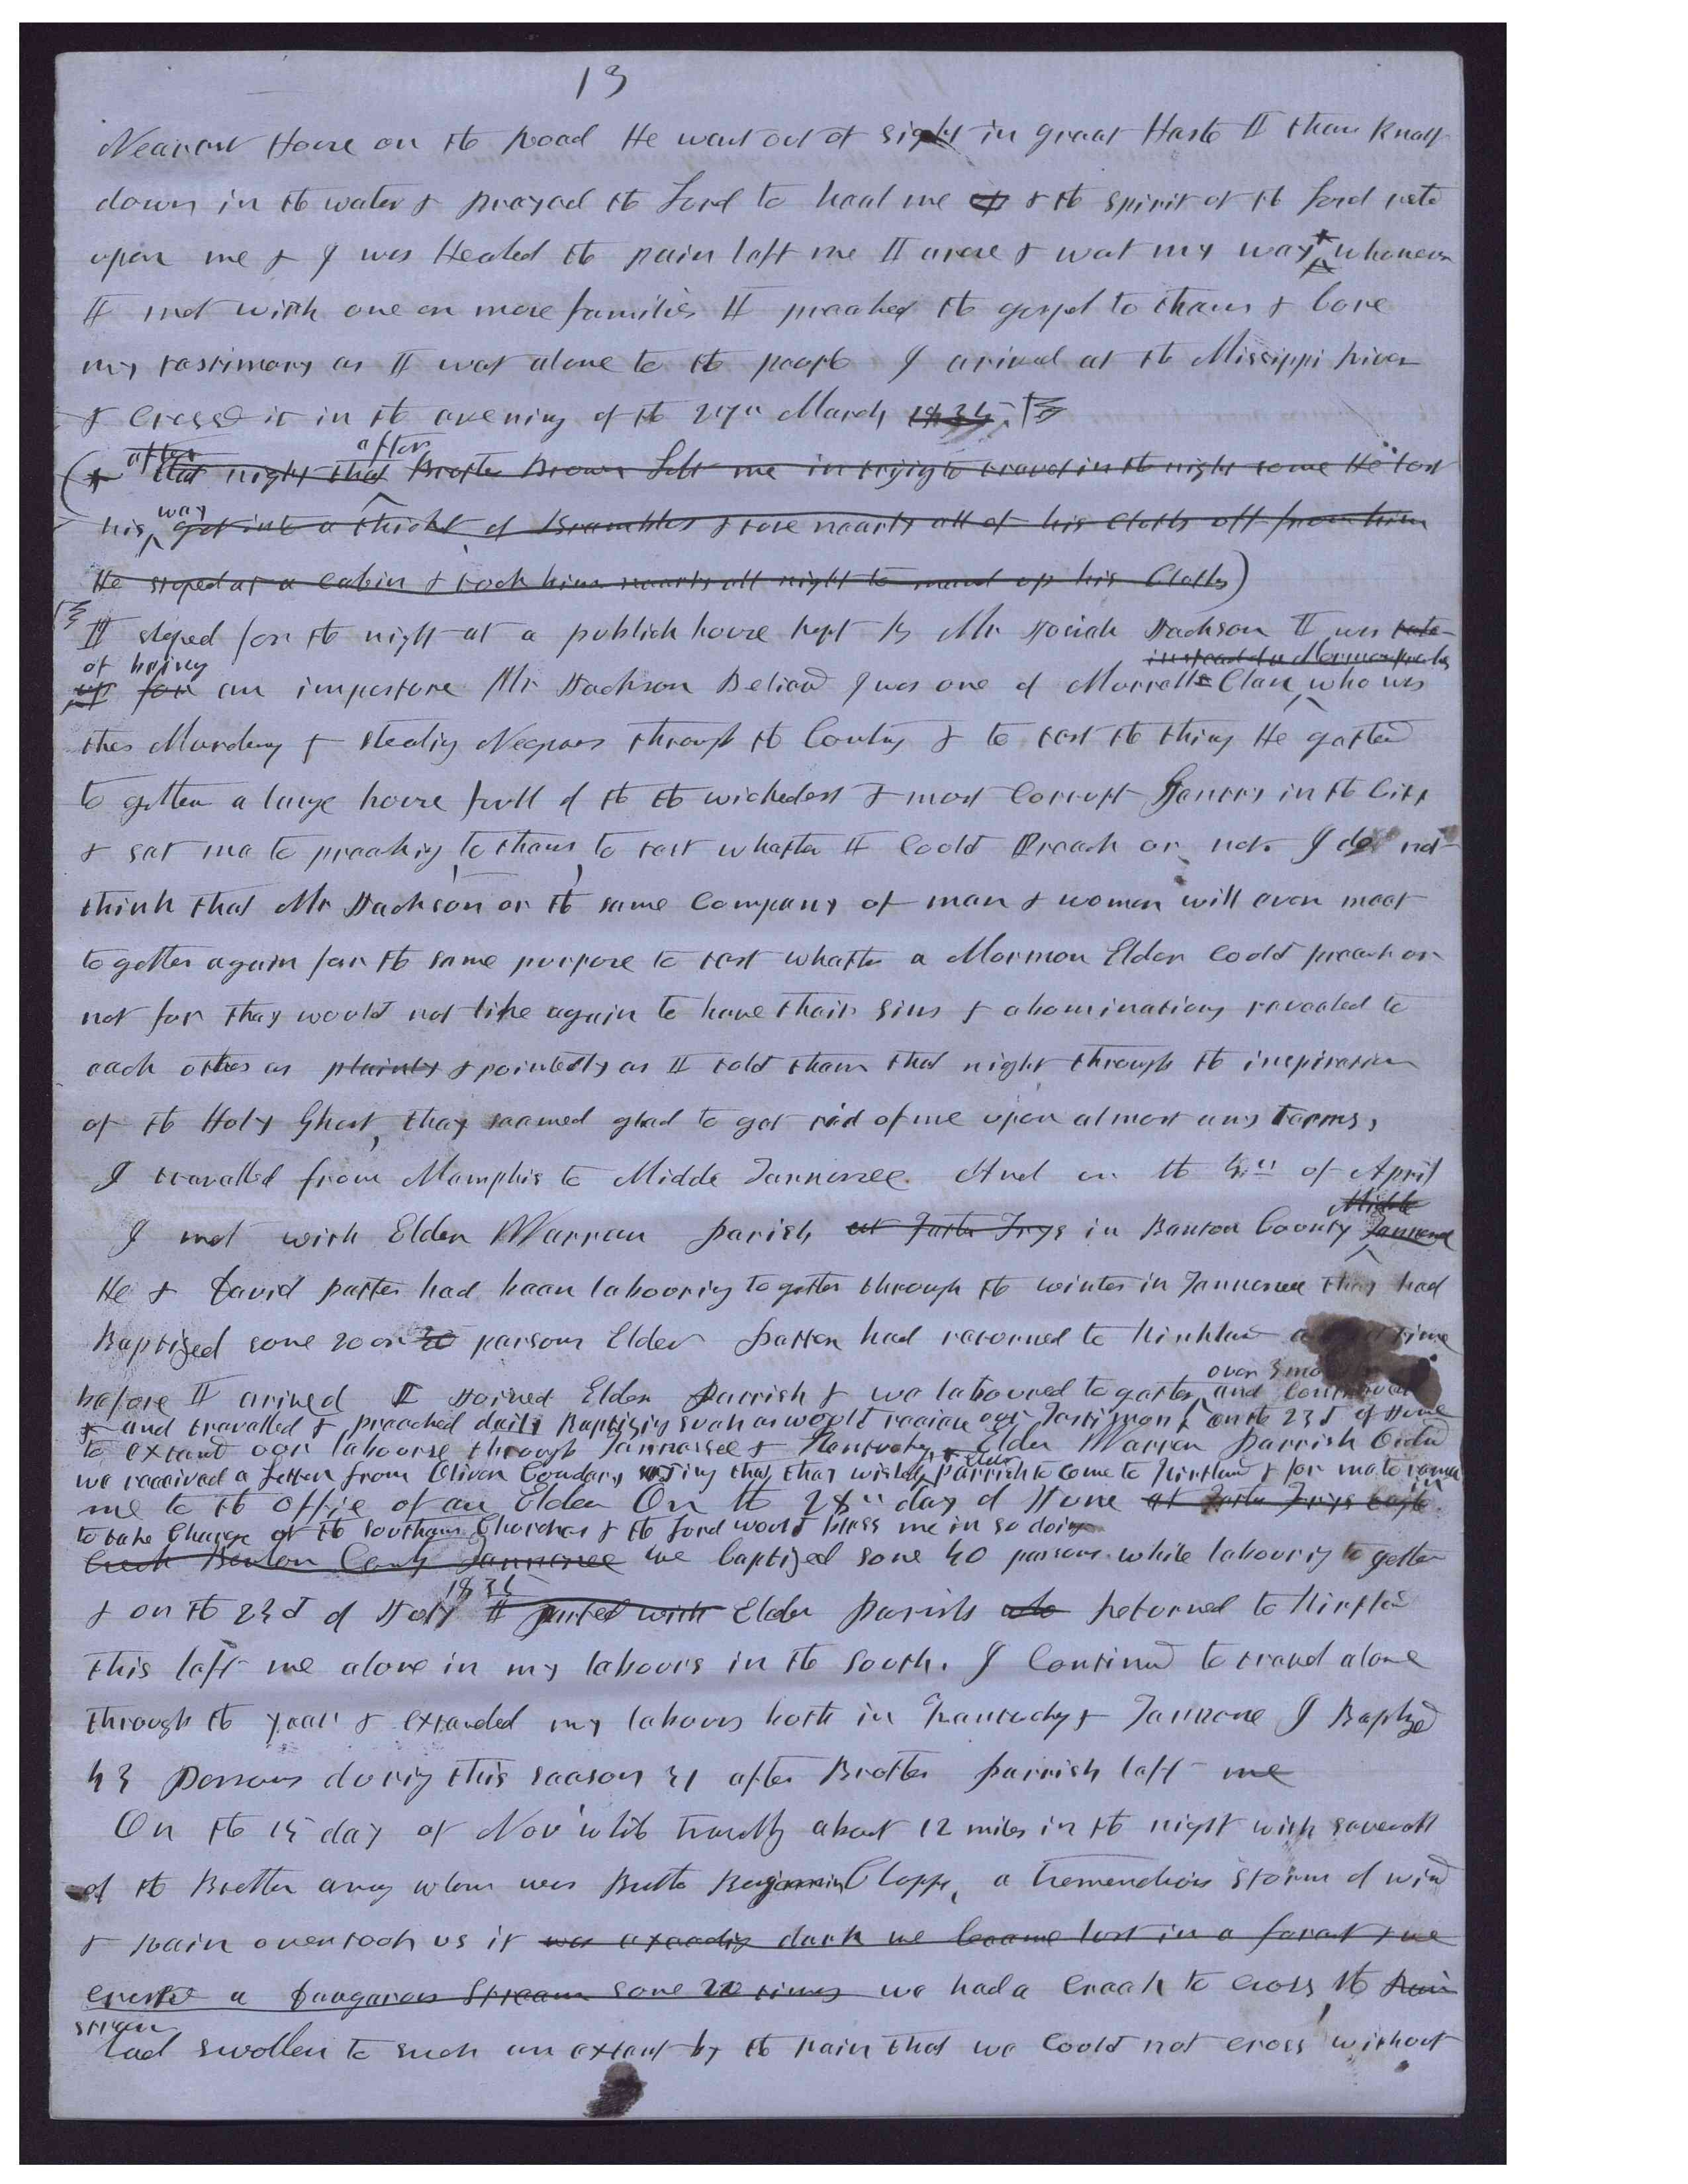 13
Nearest House on the Road He went out of sight in great Haste I then knelt
down in the water & prayed the Lord to heal me & the spirit of the Lord rests
upon me & I was Healed the pain left me I arose & went my way * whenever
I met with one or more families I preached the gospel to them & bore
my testimony as I went alone to the people I arived at the Missippi River
& Crossed it in the evening of the 27th March 1835
after after
(* that night that Brother Brown left me in trying to travel in the night some He lost
way
his got into a thicket of Brambles & tore nearly all of his Cloths off from him
He stoped at a Cabin & took him nearly all night to mend up his Cloths)
I stoped for the night at a publick house kept by Mr Josiah Jackson I was
of being instead of a Mormon
up for an imposture Mr Jackson Belied I was one of Murrells Clan who was
then Murdering & stealing Negroes through the Contry & to test the thing He gatherd
to gether a large house full of the the wickedest & most Corrupt Gentry in the City
& set me to preaching to them to test whether I Could Preach or not. I do not
think that Mr Jackson or the same Company of men & women will ever meet
to gether again for the same purpose to test whether a Mormon Elder Could preach or
not for they would not like again to have their sins & abominations revealed to
each other as plainly & pointedly as I told them that night through the inspiration
of the Holy Ghost, they seemed glad to get rid of me upon almost any terms,
I travelled from Memphis to Midde Tennessee. And on the 4th of April
Middle
I met with Elder Warren Parish at Father Frys in Benton County Tennessee
He & David Patten had been labouring to gether through the winter in Tennessee they had
Baptized some 20 or 30 persons Elder Patten had returned to Kirkland time
over 3 mo
before I arived I Joined Elder Parrish & we laboured to gether and Continued
& and travelled & preached daily Baptizing such as would receive our Testimony on the 23d of June
to extend our labourse through Tennessee & Kentucky & Elder Warren Parrish Ordad
Elder
we received a letter from Oliver Cowdery saying that they wished Parrish to come to Kirtland & for me to remain
me to the Offie of an Elder On the 28th day of June at Father Frys Eagle
to take Charge of the Southern Churches & the Lord would bless me in so doing
Creek Benton County Tennessee we baptized some 40 persons while labouring to gether
1835
& on the 23d of July I parted with Elder Parish who Returned to Kirtland
This left me alone in my labours in the South. I Continued to travel alone
through the year & extended my labours both in Kentucky & Tennessee I Baptized
43 Persons during this season 31 after Brother Parrish left me
On the 15 day of Nov while travelling about 12 miles in the night with severall
of the Brethren among whom was Brother Benjamin Clapp, a tremendious storm of wind
& Rain overtook us it was exceeding dark we became lost in a forest & we
crossed a dangerous Stream some 20 times we had a Creek to cross the Rain
stream
had swollen to such an extent by the Rain that we Could not cross without